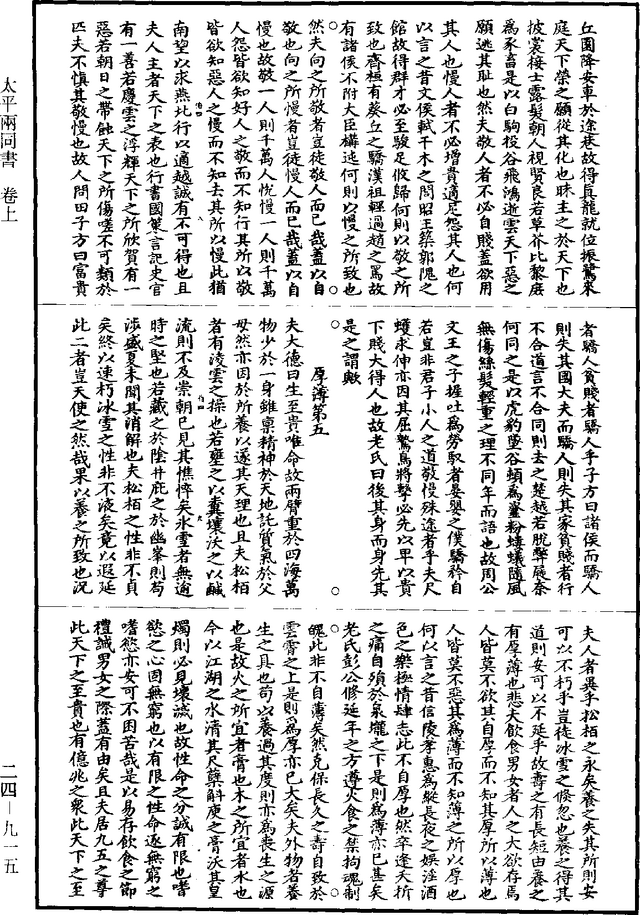 太平兩同書 卷上
二四—九一五
丘園降安車於途巷故得真龍就位振鷺來
庭天下榮之願從其化也昧主之於天下也
披裳接士露髮朝人視賢良若草芥比黎庶
為豕畜是以白駒投谷飛鴻逝雲天下惡之
願逃其恥也然夫敬人者不必自賤蓋欲用
其人也慢人者不必增貴適足怨其人也何
以言之昔文侯軾干木之閭昭王築郭隗之
館故得群才必至駿足攸歸何則以敬之所
致也齊桓有葵丘之驕漢祖輕過趙之罵故
有諸侯不附大臣構逆何則以慢之所致也
然夫向之所敬者豈徒敬人而已哉蓋以自
敬也向之所慢者豈徒慢人而已哉蓋以自
慢也故敬一人則千萬人悅慢一人則千萬
人怨皆欲知好人之敬而不知行其所以敬
皆欲知惡人之慢而不知去其所以慢此猶
南望以求燕北行以適越誠有不可得也且
夫人主者天下之表也行書國策言記史官
有一善若慶雲之浮輝天下之所欣賀有一
惡若朝日之帶蝕天下之所傷嗟不可類於
匹夫不慎其敬慢也故人問田子方曰富貴
者驕人貧賤者驕人乎子方曰諸侯而驕人
則失其國大夫而驕人則失其家貧賤者行
不合道言不合同則去之楚越若脫弊屣奈
何同之是以虎豹墜谷頓為齏粉螻蟻隨風
無傷絲髮輕重之理不同年而語也故周公
文王之子握吐為勞馭者晏嬰之僕驕矜自
若豈非君子小人之道敬慢殊途者乎夫尺
蠖求伸亦因其屈鷙鳥將擊必先以卑以貴
下賤大得人也故老氏曰後其身而身先其
是之謂歟
厚薄第五
夫大德曰生至貴唯命故兩臂重於四海萬
物少於一身雖稟精神於天地託質氣於父
母然亦因於所養以遂其天理也且夫松柏
者有凌雲之操也若壅之以糞壤沃之以鹹
流則不及崇朝已見其憔悴矣冰雪者無逾
時之堅也若藏之於陰井庇之於幽峯則苟
涉盛夏未聞其消解也夫松栢之性非不貞
矣終以速朽冰雪之性非不液矣竟以遐延
此二者豈天使之然哉果以養之所致也況
夫人者異乎松栢之永矣養之失其所則安
可以不朽乎豈徒冰雪之倐忽也養之得其
道則安可以不延乎故壽之有長短由養之
有厚薄也悲夫飲食男女者人之大欲存焉
人皆莫不欲其自厚而不知其厚所以薄也
人皆莫不惡其為薄而不知薄之所以厚也
何以言之昔信陵孝惠為縱長夜之娛淫酒
色之樂極情肆志此不自厚也然卒逢夭折
之痛自殞於泉壠之下是則為薄亦已甚矣
老氏彭公修延年之方遵火食之禁拘魂制
魄此非不自薄矣然克保長久之壽自致於
雲霄之上是則為厚亦已大矣夫外物者養
生之具也苟以養過其度則亦為喪生之源
也是故火之所宜者膏也木之所宜者水也
今以江湖之水清其尺蘗斛庾之膏沃其皇
燭則必見壞滅也故性命之分誠有限也嗜
慾之心固無窮也以有限之性命逐無窮之
嗜慾亦安可不困苦哉是以易存飲食之節
禮誡男女之際蓋有由矣且夫居九五之尊
此天下之至貴也有億兆之衆此天下之至